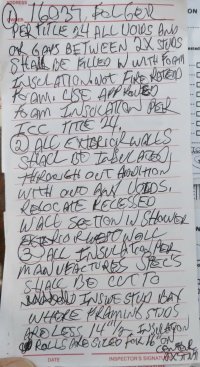 ① 16037, FOLGER
PER TITLE 24 ALL VOIDS AND
OR GAPS BETWEEN 2X STUDS
SHALL BE FILLED IN WITH FOAM
INSULATION NOT FIRE RATED
FOAM. USE APPROVED
FOAM INSULATION PER
ICC TITLE 24.
② ALL EXTERIOR WALLS
SHALL BE INSULATED
THROUGH OUT ADDITION
WITH OUT ANY VOIDS.
RELOCATE RECESSED
WALL SECTION IN SHOWER
EXTERIOR WEST WALL
③ ALL INSULATION PER
MANUFACTURES SPEC'S
SHALL BE CUT
INSIDE STUD BAY
WHERE FRAMING STUDS
ARE LESS 14 1/2" INSULATION
ROLLS ARE SIZED FOR 16" ON
CENTER
DATE INSPECTOR'S SIGNATURE